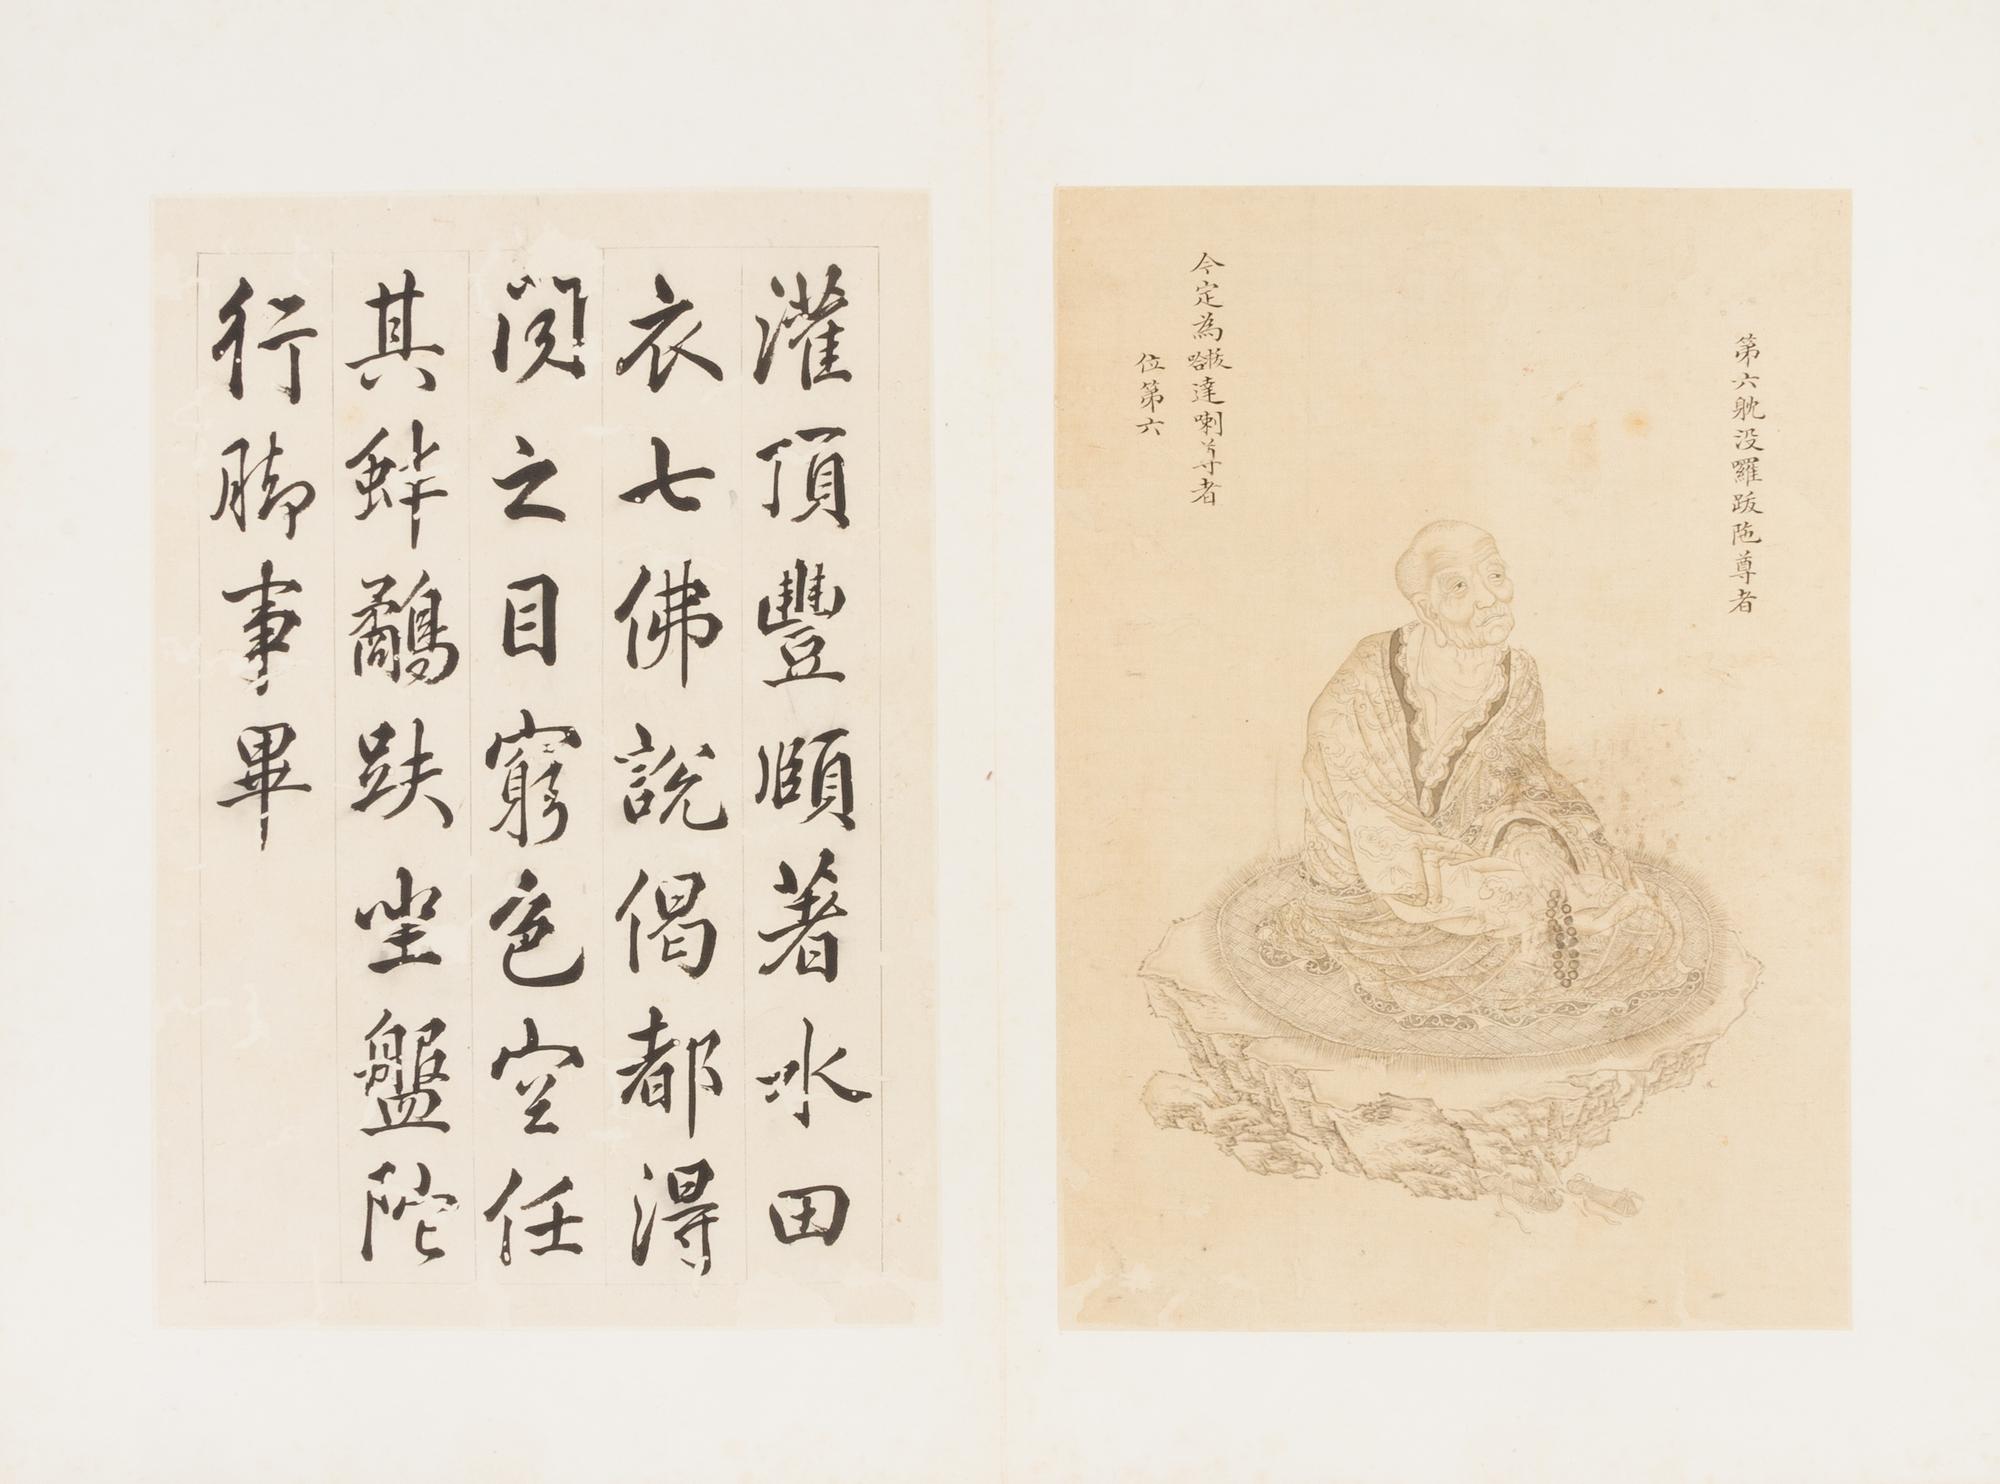 第六躭没羅跋陁尊者
今定為𠹌拔達喇尊者
位第六
灌頂豐頤著水田
衣七佛說偈都得
閱之目窮色空任
其蚌鷸趺坐盤陀
行脚事畢